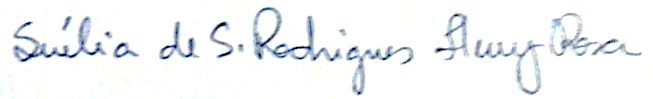 Suélia de S. Rodrigues Fleury Rosa